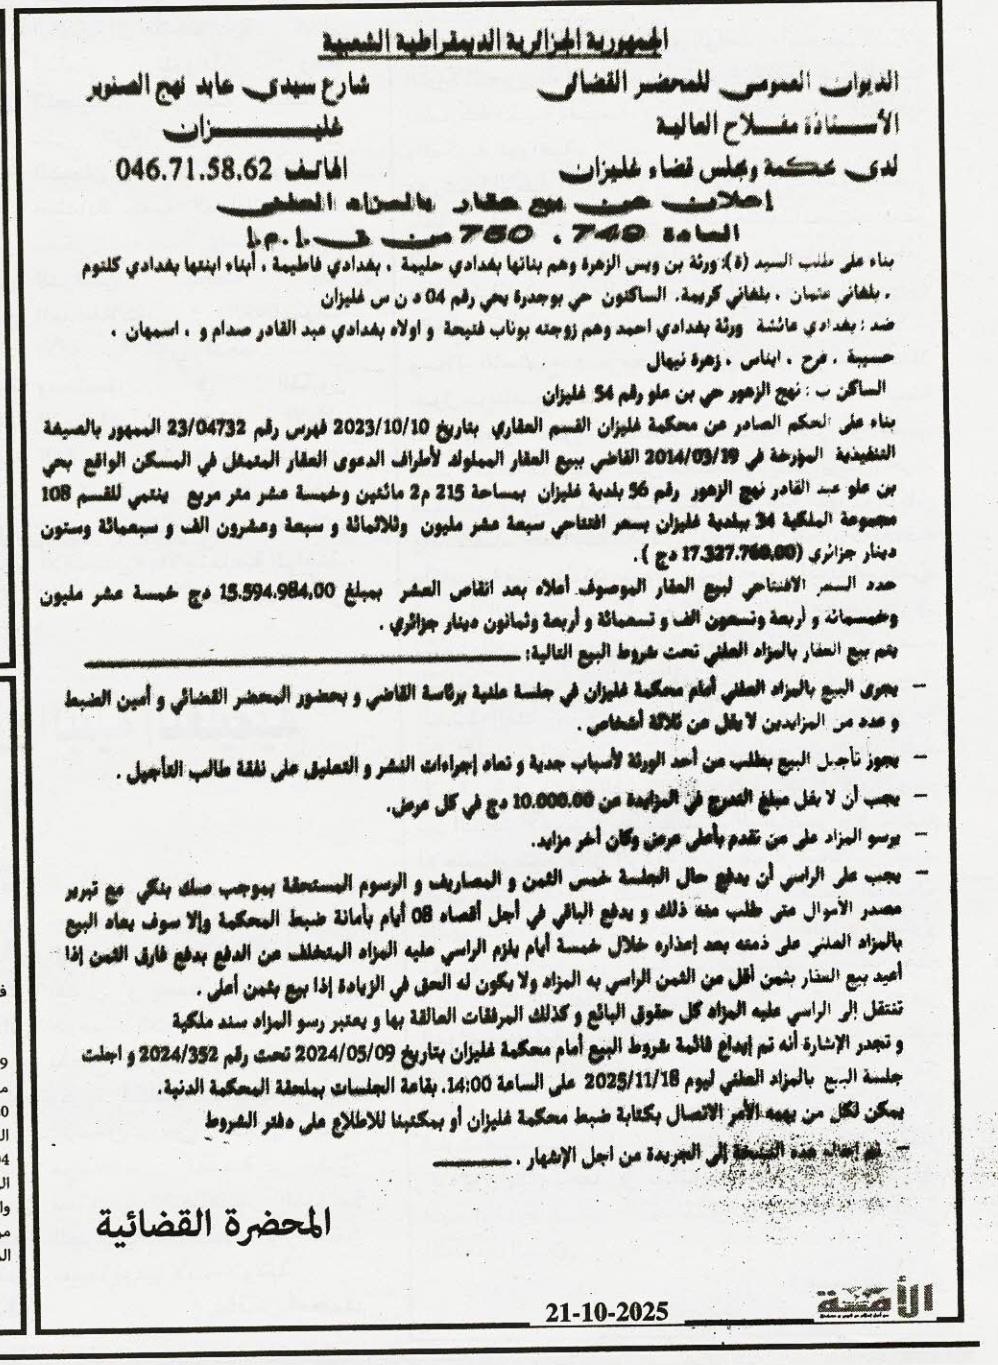 الجمهورية الجزائرية الديمقراطية الشعبية
الديوان العمومي للمحضر القضائي
شارع سيدي عابد نهج الصنوبر
الأستاذة مفلاح العالية
غليزان
لدى محكمة ومجلس قضاء غليزان
الهاتف 046.71.58.62
إعلان عن بيع عقار بالمزاد العلني
المادة 749 . 750 من ق.إ.م.إ
بناء على طلب السيد (ة): ورثة بن ويس الزهرة وهم بناتها بغدادي حليمة ، بغدادي فاطيمة ، أبناء ابنتها بغدادي كلثوم
، بلغاني عثمان ، بلغاني كريمة. الساكنون حي بوجدرة يحي رقم 04 د ن س غليزان
ضد : بغدادي عائشة ورثة بغدادي احمد وهم زوجته بوناب فتيحة و اولاه بغدادي عبد القادر صدام و ، اسمهان ،
حسيبة ، فرح ، ايناس ، زهرة نيهال
الساكن ب : نهج الزهور حي بن علو رقم 54 غليزان
بناء على الحكم الصادر عن محكمة غليزان القسم العقاري بتاريخ 2023/10/10 فهرس رقم 23/04732 الممهور بالصيغة
التنفيذية المؤرخة في 2014/03/19 القاضي ببيع العقار المملوك لأطراف الدعوى العقار المتمثل في المسكن الواقع بحي
بن علو عبد القادر نهج الزهور رقم 56 بلدية غليزان بمساحة 215 م2 مائتين وخمسة عشر متر مربع ينتمي للقسم 108
مجموعة الملكية 34 ببلدية غليزان بسعر افتتاحي سبعة عشر مليون وثلاثمائة و سبعة وعشرون الف و سبعمائة وستون
دينار جزائري (17.327.760,00 دج ) .
حدد السعر الافتتاحي لبيع العقار الموصوف أعلاه بعد انقاص العشر بمبلغ 15.594.984,00 دج خمسة عشر مليون
وخمسمائة و أربعة وتسعون الف و تسعمائة و أربعة وثمانون دينار جزائري .
يتم بيع العقار بالمزاد العلني تحت شروط البيع التالية:
– يجرى البيع بالمزاد العلني أمام محكمة غليزان في جلسة علنية برئاسة القاضي و بحضور المحضر القضائي و أمين الضبط
و عدد من المزايدين لا يقل عن ثلاثة أشخاص .
– يجوز تأجيل البيع بطلب من أحد الورثة لأسباب جدية و تعاد إجراءات النشر و التعليق على نفقة طالب التأجيل .
– يجب أن لا يقل مبلغ التدرج في المزايدة عن 10.000.00 دج في كل عرض.
– يرسو المزاد على من تقدم بأعلى عرض وكان أخر مزايد.
– يجب على الراسي أن يدفع حال الجلسة خمس الثمن و المصاريف و الرسوم المستحقة بموجب صك بنكي مع تبرير
مصدر الأموال متى طلب منه ذلك و يدفع الباقي في أجل أقصاه 08 أيام بأمانة ضبط المحكمة وإلا سوف يعاد البيع
بالمزاد العلني على ذمته بعد إعذاره خلال خمسة أيام يلزم الراسي عليه المزاد المتخلف عن الدفع بدفع فارق الثمن إذا
أعيد بيع العقار بثمن أقل من الثمن الراسي به المزاد ولا يكون له الحق في الزيادة إذا بيع بثمن أعلى .
تنتقل إلى الراسي عليه المزاد كل حقوق البائع و كذلك المرفقات العالقة بها و يعتبر رسو المزاد سند ملكية
و تجدر الإشارة أنه تم إيداع قائمة شروط البيع أمام محكمة غليزان بتاريخ 2024/05/09 تحت رقم 2024/352 و اجلت
جلسة البيع بالمزاد العلني ليوم 2025/11/18 على الساعة 14:00. بقاعة الجلسات بملحقة المحكمة الدنية.
يمكن لكل من يهمه الأمر الاتصال بكتابة ضبط محكمة غليزان أو بمكتبنا للاطلاع على دفتر الشروط
– تم إحالة هذه النسخة إلى الجريدة من اجل الإشهار .
المحضرة القضائية
21-10-2025
الأمة